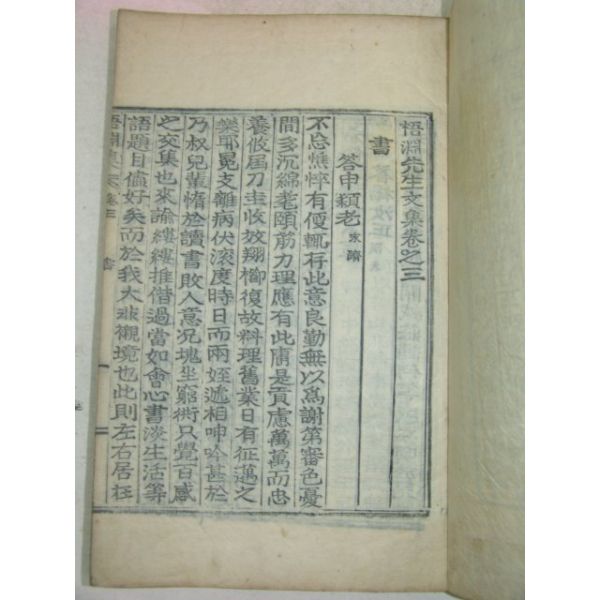 悟淵先生文集卷之三
書
答申穎老 永躋
不忘憔悴有便輒存此意良勤無以爲謝第審色憂
間多沉綿耄頤筋力理應有此庸是貢慮萬萬而忠
養攸届刀圭收效翔櫛復故料理舊業日有征邁之
樂耶冕支離病伏滚度時日而兩姪遞相呻吟甚於
乃叔兒輩惰於讀書敗人意况塊坐窮衖只覺百感
之交集也來諭縷縷推借過當如會心書淡生活等
語題目儘好矣而於我大非襯境也此則左右居在
悟淵集 卷三 書